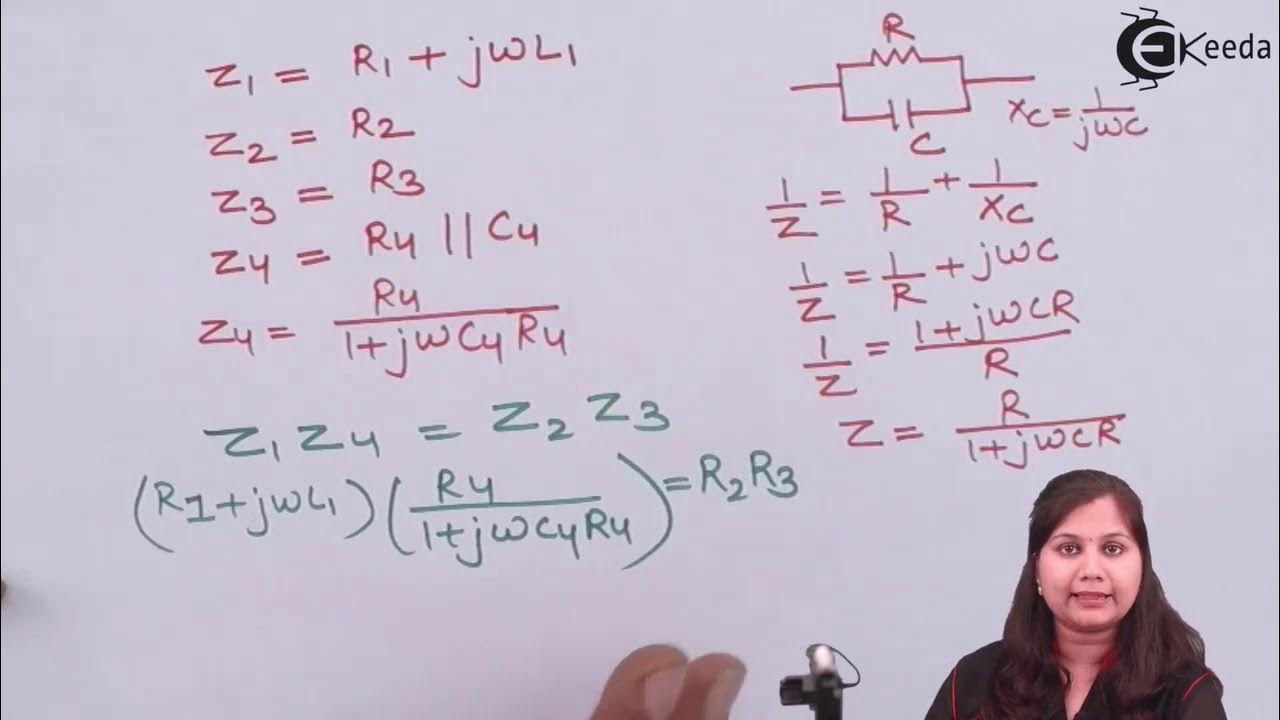 Z₁ = R₁ + jωL₁
Z₂ = R₂
Z₃ = R₃
Z₄ = R₄ || C₄
Z₄ = R₄ / (1+jωC₄R₄)
Z₁ Z₄ = Z₂ Z₃
(R₁+jωL₁) (R₄ / (1+jωC₄R₄)) = R₂R₃
EKeeda
R
C
Xc = 1/jωC
1/Z = 1/R + 1/Xc
1/Z = 1/R + jωC
1/Z = (1+jωCR) / R
Z = R / (1+jωCR)